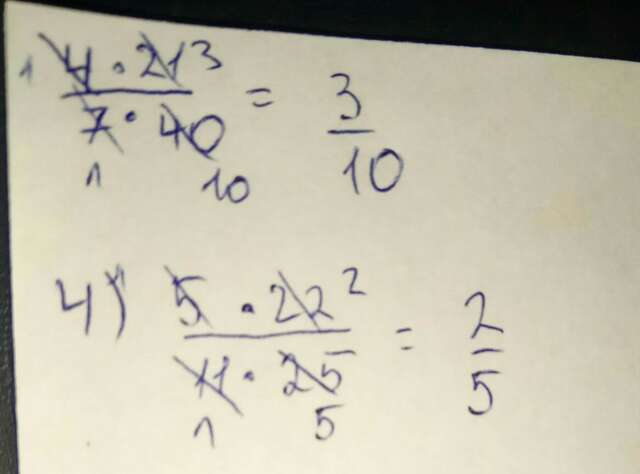 1 4 · 21 3
7 · 40 = 3/10
1 10
4) 5 · 22 2
11 · 25 = 2/5
1 5